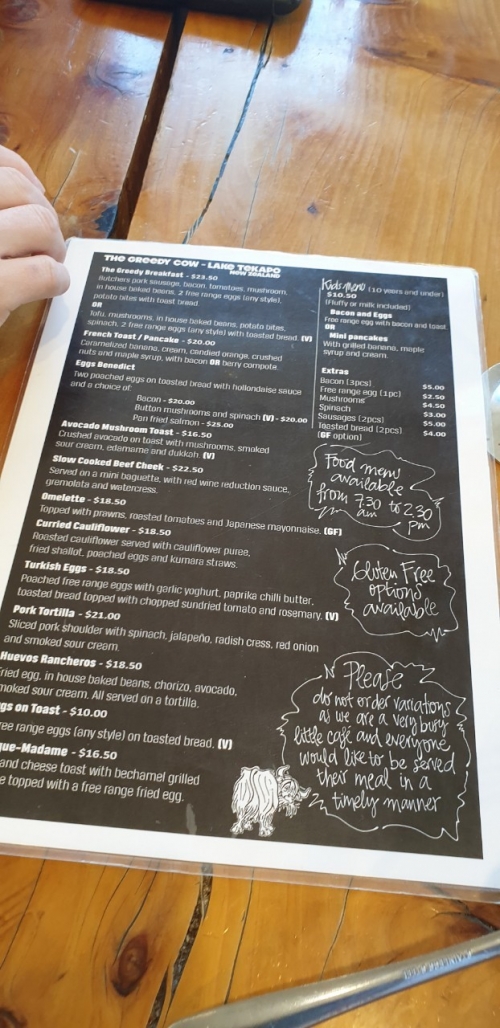 THE GREEDY COW - LAKE TEKAPO
NEW ZEALAND
The Greedy Breakfast - $23.50
Butchers pork sausage, bacon, tomatoes, mushroom,
in house baked beans, 2 free range eggs (any style),
potato bites with toast bread
OR
Tofu, mushrooms, in house baked beans, potato bites,
spinach, 2 free range eggs (any style) with toasted bread (V)
French Toast / Pancake - $20.00
Caramelized banana, cream, candied orange, crushed
nuts and maple syrup, with bacon OR berry compote
Eggs Benedict
Two poached eggs on toasted bread with hollandaise sauce
and a choice of:
Bacon - $20.00
Button mushrooms and spinach (V) - $20.00
Pan fried salmon - $25.00
Avocado Mushroom Toast - $16.50
Crushed avocado on toast with mushrooms, smoked
sour cream, edamame and dukkah (V)
Slow Cooked Beef Cheek - $22.50
Served on a mini baguette, with red wine reduction sauce,
gremolata and watercress.
Omelette - $18.50
Topped with prawns, roasted tomatoes and Japanese mayonnaise. (GF)
Curried Cauliflower - $18.50
Roasted cauliflower served with cauliflower puree,
fried shallot, poached eggs and kumara straws.
Turkish Eggs - $18.50
Poached free range eggs with garlic yoghurt, paprika chilli butter,
toasted bread topped with chopped sundried tomato and rosemary. (V)
Pork Tortilla - $21.00
Sliced pork shoulder with spinach, jalapeño, radish cress, red onion
and smoked sour cream.
Huevos Rancheros - $18.50
ried egg, in house baked beans, chorizo, avocado,
moked sour cream. All served on a tortilla.
gs on Toast - $10.00
ree range eggs (any style) on toasted bread. (V)
que-Madame - $16.50
and cheese toast with bechamel grilled
e topped with a free range fried egg.
Kids menu (10 years and under)
$10.50
(Fluffy or milk included)
Bacon and Eggs
Free range egg with bacon and toast
OR
Mini pancakes
With grilled banana, maple
syrup and cream.
Extras
Bacon (3pcs) $5.00
Free range egg (1pc) $2.50
Mushrooms $4.50
Spinach $3.00
Sausages (2pcs) $5.00
Toasted bread (2pcs) $4.00
(GF option)
Food menu
available
from 7.30 to 2.30
am pm
Gluten Free
options
available
Please
do not order variations
as we are a very busy
little café and everyone
would like to be served
their meal in a
timely manner